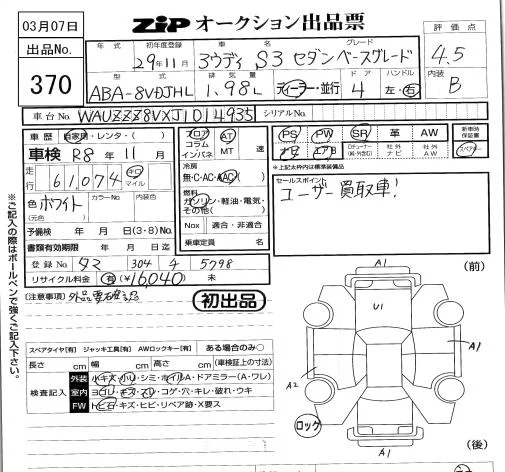 03月07日
ZiPオークション出品票
出品No.
370
年式 初年度登録 車名 グレード
29年11月 アウディ S3 セダン ベースグレード
型式 排気量 ドア ハンドル
ABA-8VDJHL 1.98L ディーラー・並行 4 左・右
評価点
4.5
内装
B
車台No. WAUZZZ8VXJ1014935 シリアルNo.
車歴 自家用・レンタ・( )
車検 R8年 11月
走行 61,074 キロ マイル
色 ホワイト (元色) カラーNo 内装色
予備検 年 月 日(3・8)No
書類有効期限 年 月 日迄
登録No 304 5798
リサイクル料金 有(¥16,040) 未
フロア コラム インパネ AT MT 速
冷房
無・C・AC・AAC
燃料
ガソリン・軽油・電気・その他( )
Nox 適合・非適合
乗車定員 名
PS PW SR 革 AW
ナビ エアB 社外ナビ 社外AW
新車時保証書
スペアキー
※上記太枠内は標準装備品
セールスポイント
ユーザー買取車!
(注意事項)
初出品
※ご記入の際はボールペンで強くご記入下さい。
スペアタイヤ[有] ジャッキ工具[有] AWロックキー[有] ある場合のみ○
長さ cm 幅 cm 高さ cm (車検証上の寸法)
検査記入
外装 小キズ・小U・シミ・ホイルA・ドアミラー(A・ワレ)
室内 ヨゴレ・キズ・スレ・コゲ・穴・キレ・破れ・ウキ
FW ト石・キズ・ヒビ・リペア跡・X要ス
(前)
A1
U1
A1
A2
ロック
A1
(後)